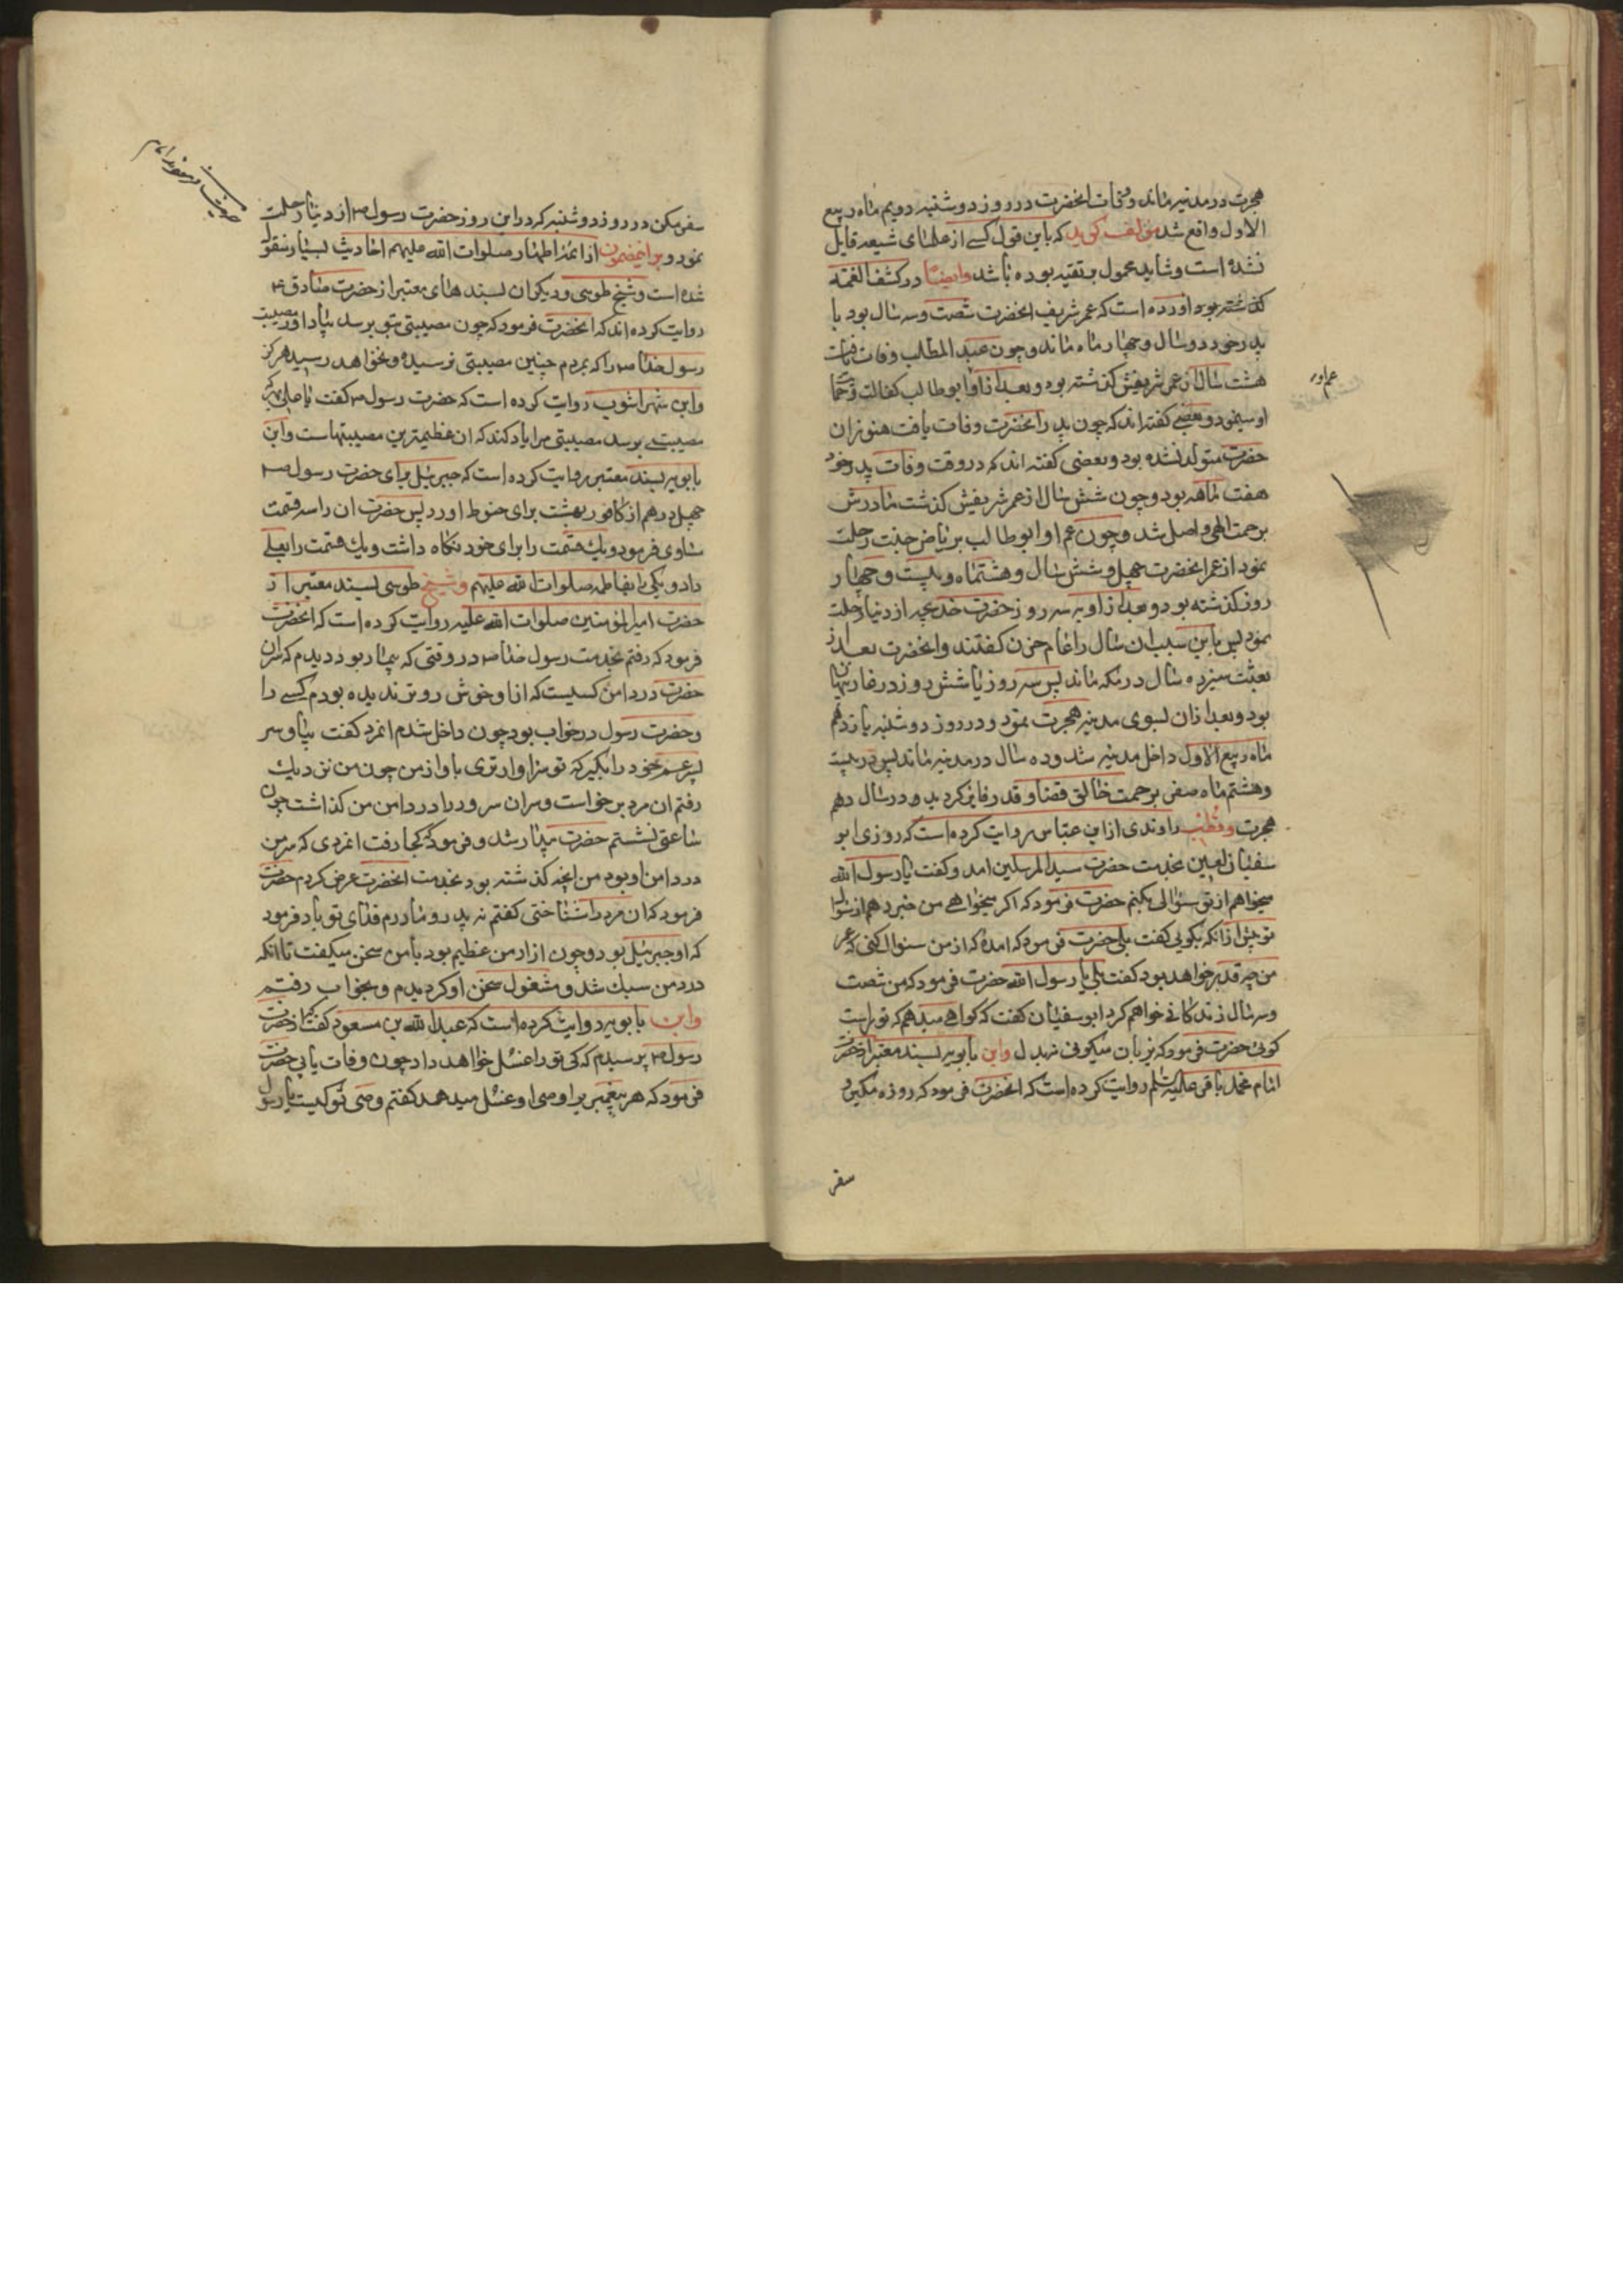 هجرت در مدینه ماند و وفات انحضرت در روز دوشنبه دویم ماه ربیع
الاول واقع شد مؤلف کوید که باین قول کسے از علمای شیعه قایل
نشده است و شاید محمول بر تقیه بوده باشد وایضًا در کشف الغمه
کذشته بود اورده است که عمر شریف انحضرت شصت و سه سال بود با
پدر خود دو سال و چهار ماه ماند و چون عبد المطلب وفات یافت
هشت سال از عمر شریفش کذشته بود و بعد از او ابو طالب کفالت و حمایت
عم او
او مینمود و بعضے کفته اند که چون پدر انحضرت وفات یافت هنوز ان
حضرت متولد نشده بود و بعضی کفته اند که در وقت وفات پدر خود
هفت ماهه بود و چون شش سال از عمر شریفش کذشت مادرش
برحمت الهی واصل شد و چون عم او ابو طالب بریاض جنت رحلت
نمود از عمر انحضرت چهل و شش سال و هشتماه و بیست و چهار
روز کذشته بود و بعد از او به سه روز حضرت خدیجه از دنیا رحلت
نمود پس باین سبب ان سال را عام حزن کفتند و انحضرت بعد از
بعثت سیزده سال در مکه ماند پس سه روز یا شش روز در غار پنهان
بود و بعد از ان بسوی مدینه هجرت نمود و در روز دوشنبه یازدهم
ماه ربیع الاول داخل مدینه شد و ده سال در مدینه ماند پس در بیست
و هشتم ماه صفر برحمت خالق قضا و قدر فایز کردید و در سال دهم
هجرت وقطب راوندی از ابن عباس روایت کرده است که روزی ابو
سفیان لعین بخدمت حضرت سید المرسلین امد و کفت یا رسول الله
میخواهم از تو سئوالی بکنم حضرت فرمود که اکر میخواهے من خبر دهم از سئوال
تو پیش از انکه بکوئی کفت بلی حضرت فرمود که امدۀ که از من سئوال کنی که عمر
من چه قدر خواهد بود کفت بلی یا رسول الله حضرت فرمود که من شصت
و سه سال زندکانے خواهم کرد ابو سفیان کفت که کواهے میدهم که تو راست
کوئی حضرت فرمود که بزبان میکوئی نه بدل واین بابویه بسند معتبر از حضرت
امام محمد باقر علیه السلم روایت کرده است که انحضرت فرمود که روزه مکیر و
سفر
سفر مکن در روز دوشنبه که در این روز حضرت رسول ص از دنیا رحلت
نمود و بر اینمضمون از ائمه اطهار صلوات الله علیهم احادیث بسیار منقول
شده است و شیخ طوسی و دیکران بسند های معتبر از حضرت صادق ع
روایت کرده اند که انحضرت فرمود که چون مصیبتی بتو برسد بیاد اور مصیبت
رسول خدا ص را که بمردم چنین مصیبتی نرسیده و نخواهد رسید هرکز
وابن شهر اشوب روایت کرده است که حضرت رسول ص کفت یا علی هر که
مصیبتے برسد مصیبتی مرا یاد کند که ان عظیمترین مصیبتهاست وابن
بابویه بسند معتبر روایت کرده است که جبرئیل برای حضرت رسول ص
چهل درهم از کافور بهشت برای حنوط اورد پس حضرت ان را سه قسمت
مساوی فرمود و یك قسمت را برای خود نکاه داشت و یك قسمت را بعلے
داد و یکی را بفاطمه صلوات الله علیهم وشیخ طوسی بسند معتبر از
حضرت امیر المؤمنین صلوات الله علیه روایت کرده است که انحضرت
فرمود که رفتم بخدمت رسول خدا ص در وقتی که بیمار بود دیدم که سر ان
حضرت در دامن کسیست که از او خوش روتر ندیده بودم کسے را
و حضرت رسول در خواب بود چون داخل شدم انمرد کفت بیا و سر
پسر عم خود را بکیر که تو سزاوارتری باو از من چون من نزدیك
رفتم ان مرد برخواست و سر ان سرور را در دامن من کذاشت چون
ساعتی نشستم حضرت بیدار شد و فرمود که کجا رفت انمردی که سر من
در دامن او بود من انچه کذشته بود بخدمت انحضرت عرض کردم حضرت
فرمود که ان مرد را شناختی کفتم نه پدر و مادرم فدای تو باد فرمود
که او جبرئیل بود و چون ازار من عظیم بود با من سخن میکفت تا انکه
درد من سبك شد و مشغول سخن او کردیدم و بخواب رفتم
وابن بابویه روایت کرده است که عبد الله بن مسعود کفت که از حضرت
رسول ص پرسیدم که کی تو را غسل خواهد داد چون وفات یابی حضرت
فرمود که هر پیغمبر را وصی او غسل میدهد کفتم وصی تو کیست یا رسول